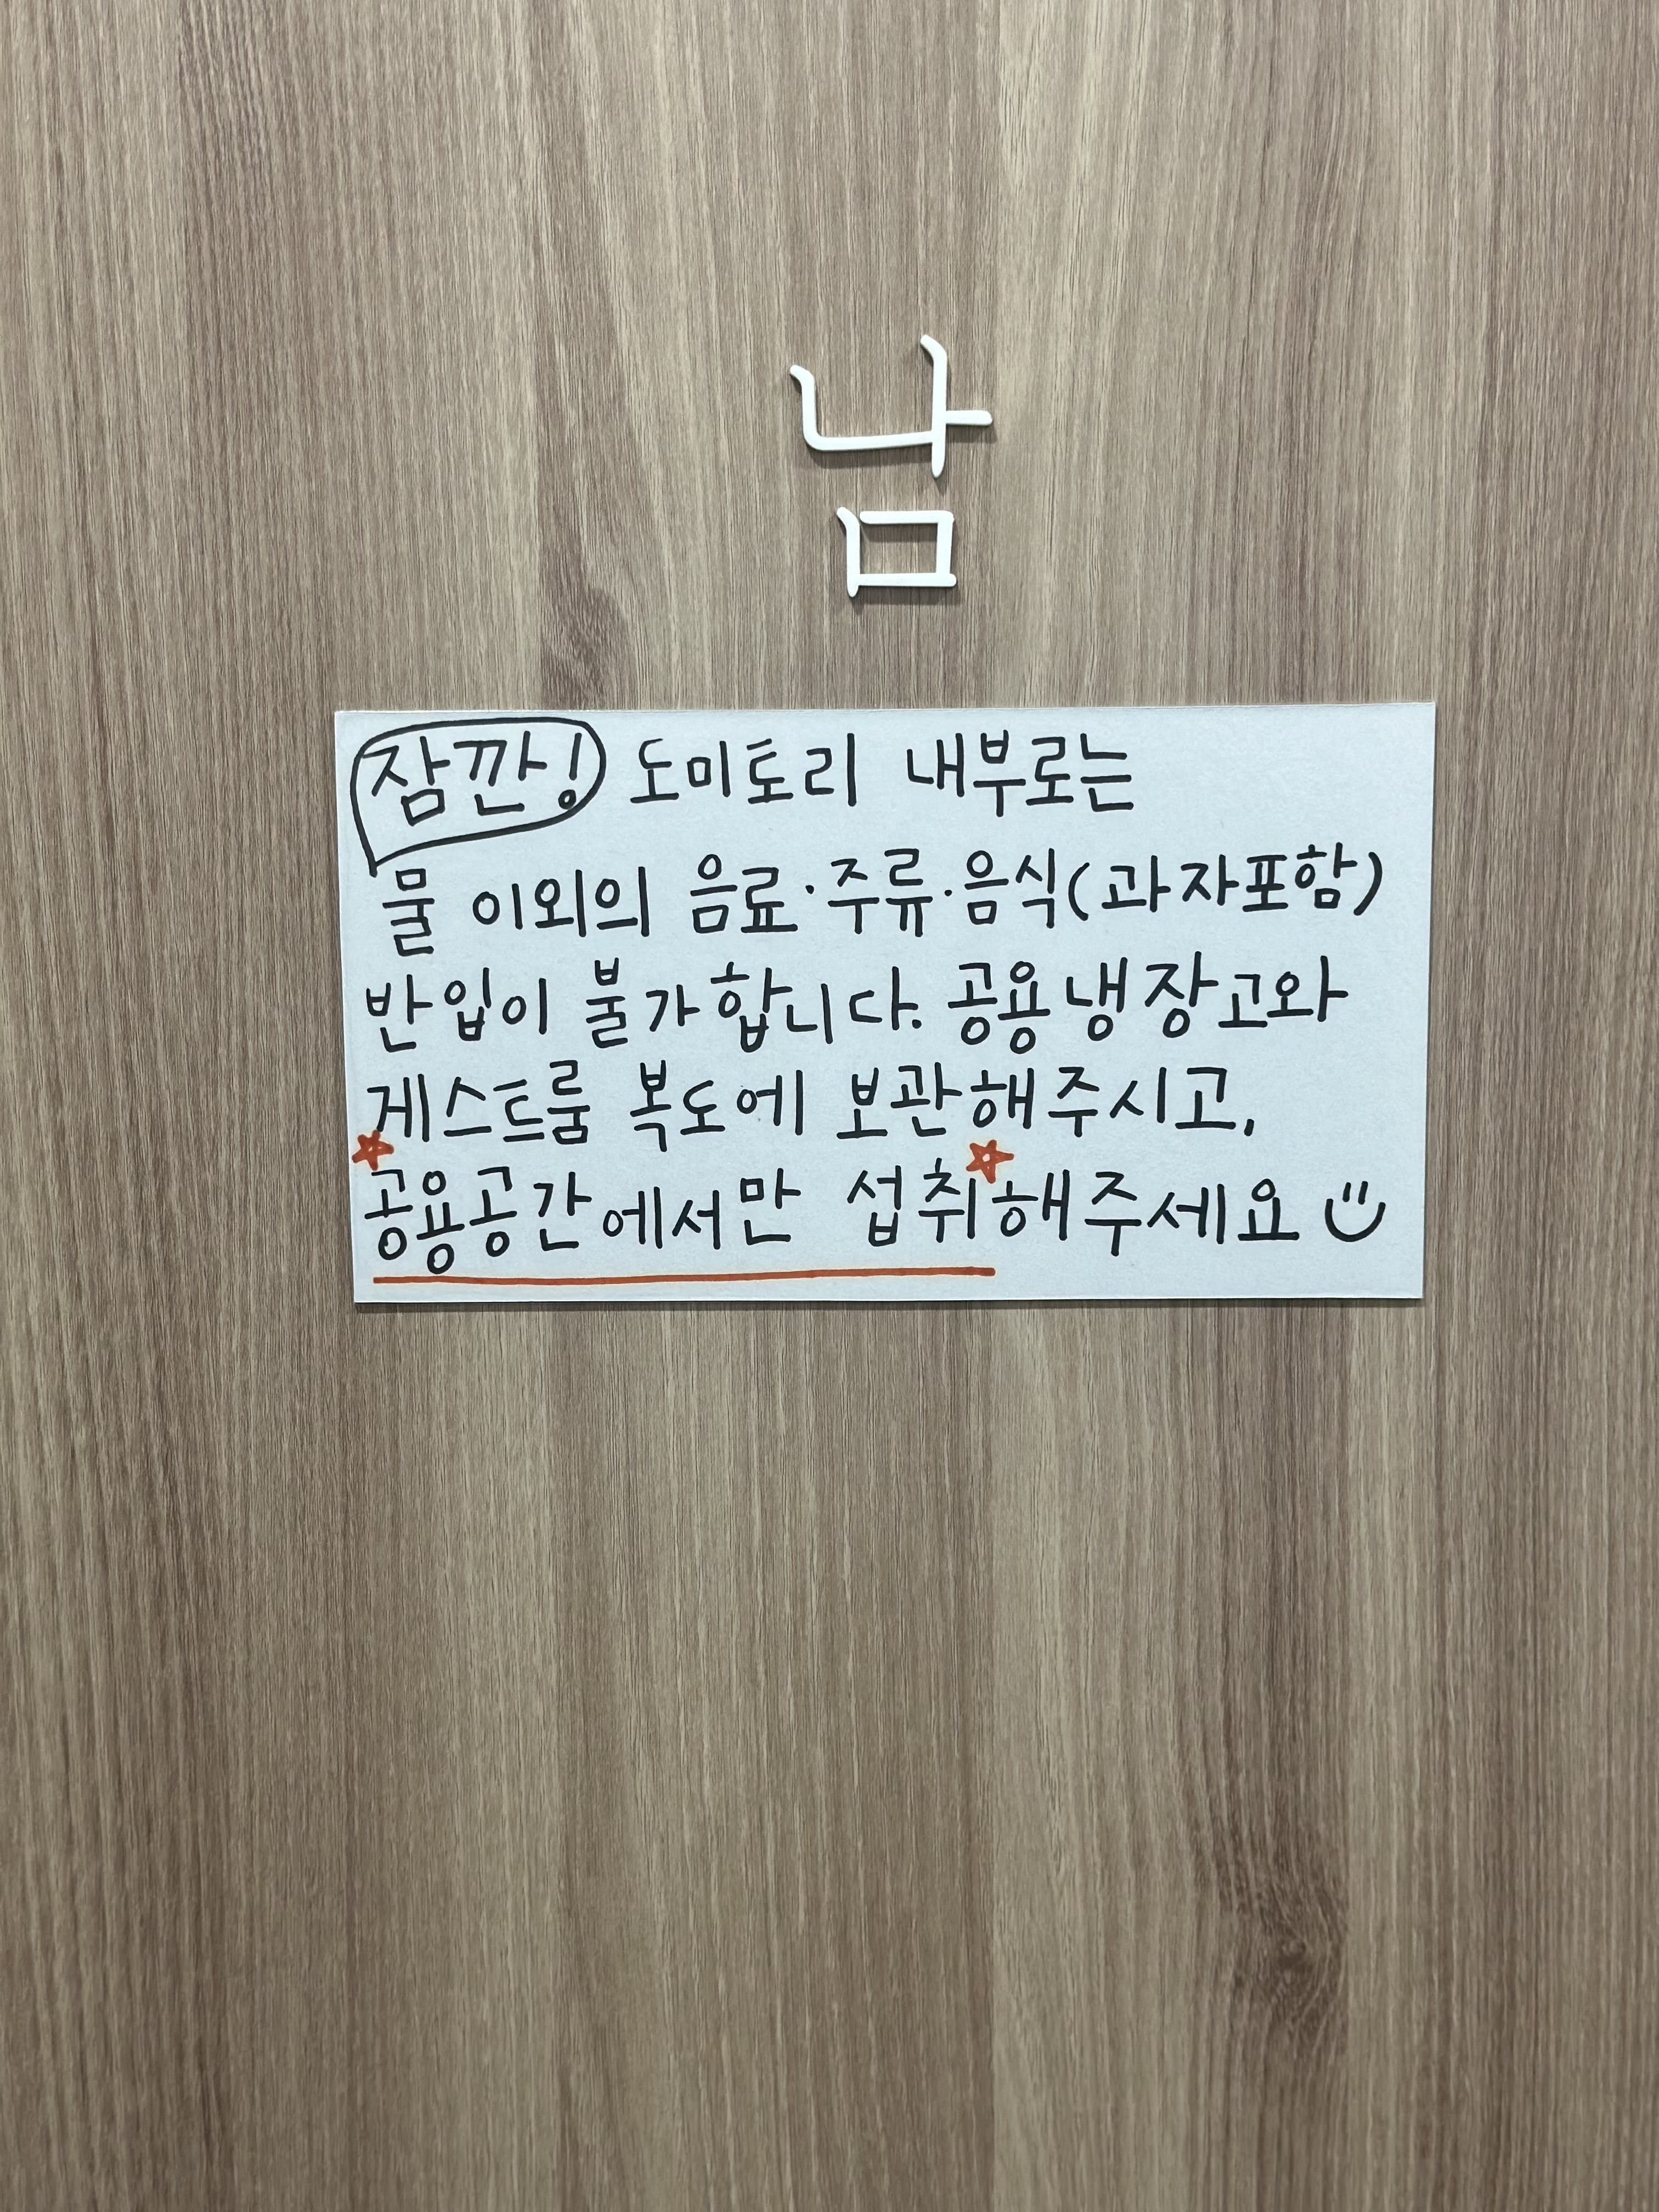 남
잠깐! 도미토리 내부로는
물 이외의 음료·주류·음식(과자포함)
반입이 불가합니다. 공용냉장고와
게스트룸 복도에 보관해주시고,
공용공간에서만 섭취해주세요